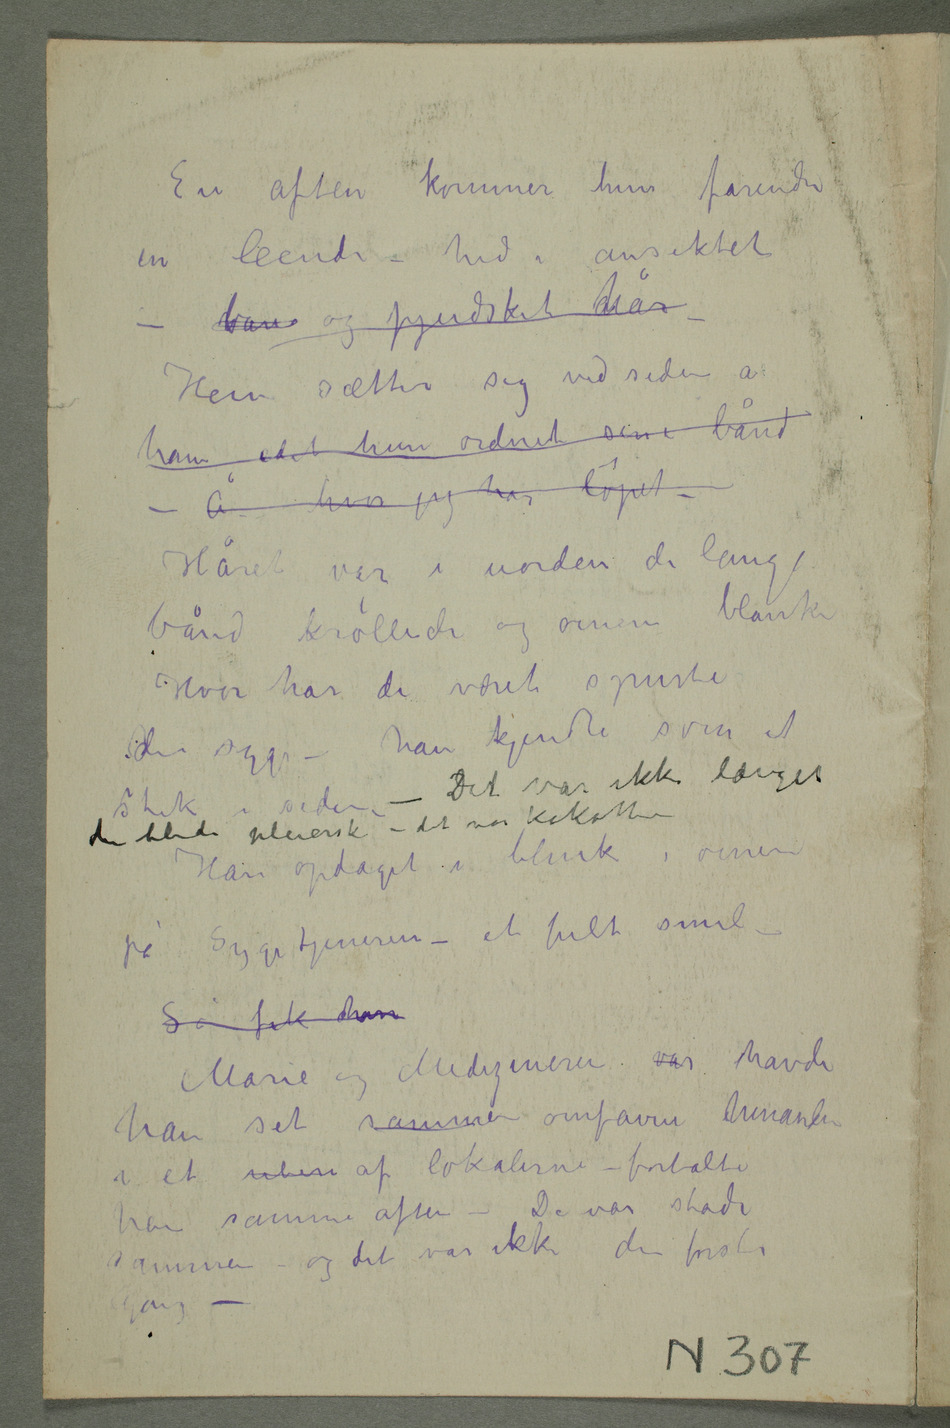 En aften kommer hun farende
in leende – hed i ansiktet
– bar og pjusket hår –
Hun sætter sig ved siden a
ham idet hun ordnet sine bånd
– Å hvor jeg har löpet –
Håret var i uorden de lange
bånd kröllede og öinene blanke
Hvor har de været spurte
den syge – han kjendte som et
stik i siden – Det var ikke længer
den blide pleierske – det var kokotten
Han opdaget i blink i öinene
på Sygetjeneren – et fult smil –
Så fik han
Marie og Medizineren var havde
han set sammen omfavne hinanden
i et af lokalerne – fortalte
han samme aften – De var stadi
sammen – og det var ikke den förste
gang –
N 307